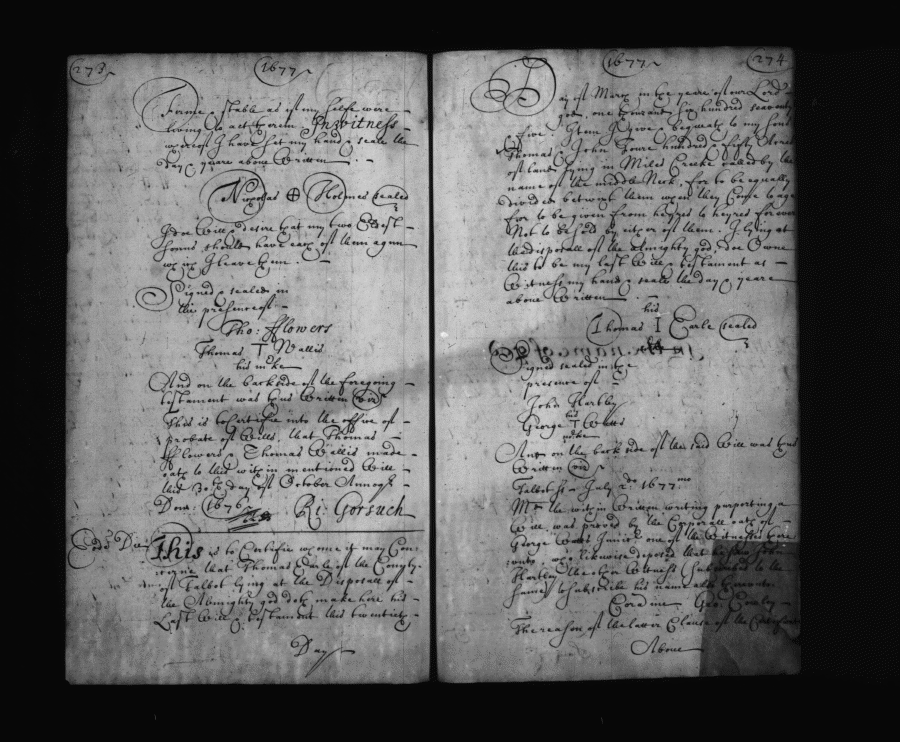 273
1677
Firme & stable as if my selfe were
living to act therein In witness
whereof I have set my hand & seale the
day & yeare above Written
Nicholas Holmes sealed
I doe Will & desire that my two Eldest
sonns should have care of them again
I leave them
Signed & sealed in
the presence of
Tho: fflowers
Thomas T Wallis
his mke
And on the backside of the foregoing
testament was thus Written viz
This is to Certifie into the office of
probate of Wills, that Thomas
fflowers & Thomas Wallis made
oath to this within mentioned Will
this 30th day of October Annoq
Dom: 1676
Ri: Gorsuch
Eodm Die
This is to Certifie whome it may Con:
cerne that Thomas Earle of the County
of Talbot lying at the Disposall of
the Almighty god doth make here his
Last Will & testament this twentieth
Day
1677
274
Day of March in the yeare of our Lord
god, one thousand six hundred seaventy
& five. Item I give & bequeath to my sons
Thomas & John foure hundred & fifty Acres
of land lying in Miles Creeke called by the
name of the middle Neck, for to be equally
divided betwixt them when they Come to age
for to be given from heyres to heyres forever
Not to be sold by either of them. I lying at
the disposall of the Almighty god, doe Owne
this to be my last Will & testament as
Witness my hand & seale the day & yeare
above Written
his
Thomas I Earle sealed
Signed sealed in the
presence of
John Hartley
his
George T Watts
mke
And on the back side of the said Will was thus
Written viz
Talbot ss July 2d 1677
Mdm the within Written writing purporting a
Will, was proved by the Corporall oath of
George Watts Junior one of the Witnesses here
unto, who likewise deposed that he saw John
Hartley the other Witness subscribe his name
Coram me Geo: Cowley
The reason of the latter Clause of the
Above